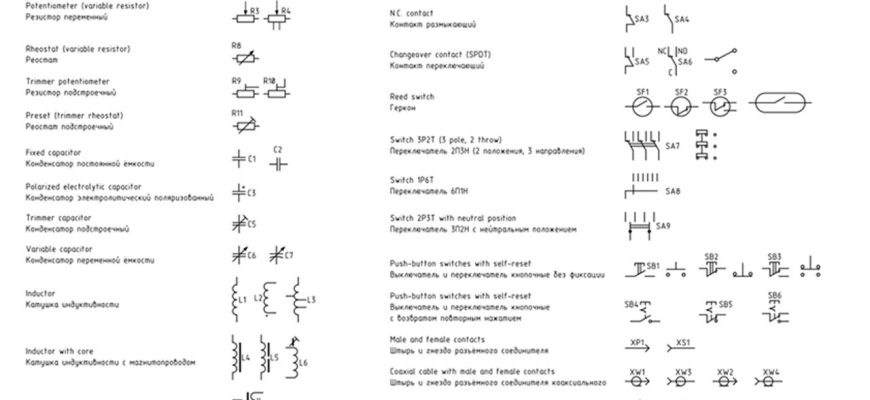 Potentiometer (variable resistor)
Резистор переменный
R3
R4
Rheostat (variable resistor)
Реостат
R8
Trimmer potentiometer
Резистор подстроечный
R9
R10
Preset (trimmer rheostat)
Реостат подстроечный
R11
Fixed capacitor
Конденсатор постоянной ёмкости
C1
C2
Polarized electrolytic capacitor
Конденсатор электролитический поляризованный
C3
Trimmer capacitor
Конденсатор подстроечный
C5
Variable capacitor
Конденсатор переменной ёмкости
C6
C7
Inductor
Катушка индуктивности
L1
L2
L3
Inductor with core
Катушка индуктивности с магнитопроводом
L4
L5
L6
N.C. contact
Контакт размыкающий
SA3
SA4
Changeover contact (SPDT)
Контакт переключающий
SA5
NC
NO
SA6
C
Reed switch
Геркон
SF1
SF2
SF3
Switch 3P2T (3 pole, 2 throw)
Переключатель 2П3Н (2 положения, 3 направления)
SA7
Switch 1P6T
Переключатель 6П1Н
SA8
Switch 2P3T with neutral position
Переключатель 3П2Н с нейтральным положением
SA9
Push-button switches with self-reset
Выключатель и переключатель кнопочные без фиксации
SB1
SB2
SB3
Push-button switches with self-reset
Выключатель и переключатель кнопочные
с возвратом повторным нажатием
SB4
SB5
SB6
Male and female contacts
Штырь и гнездо разъёмного соединителя
XP1
XS1
Coaxial cable with male and female contacts
Штырь и гнездо разъёмного соединителя коаксиального
XW1
XW3
XW2
XW4